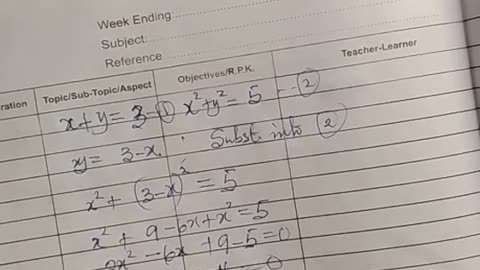 Week Ending
Subject
Reference
ration Topic/Sub-Topic/Aspect Objectives/R.P.K. Teacher-Learner
x+y = 3 -① x²+y² = 5 - ②
y = 3-x. Subst. into ②
x² + (3-x)² = 5
x² + 9 - 6x + x² = 5
2x² - 6x + 9 - 5 = 0